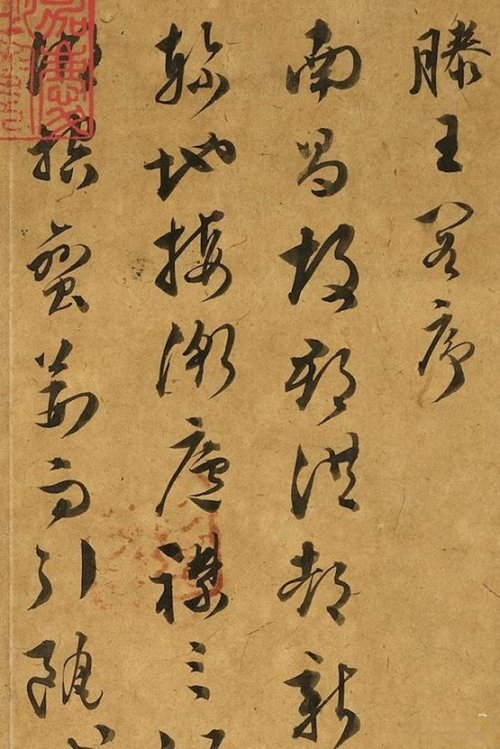 滕王閣序
南昌故郡洪都新
軫地接衡廬襟三
湖控蠻荊而引甌